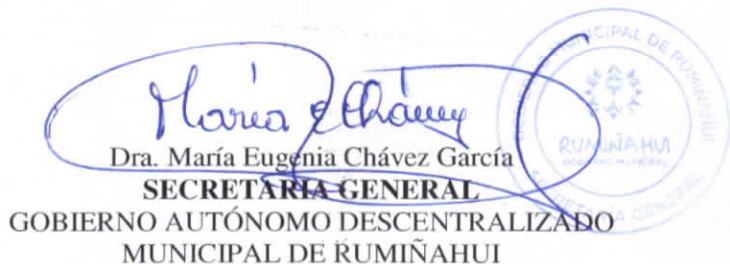 María E Chávez
Dra. María Eugenia Chávez García
SECRETARIA GENERAL
GOBIERNO AUTÓNOMO DESCENTRALIZADO
MUNICIPAL DE RUMIÑAHUI
MUNICIPAL DE RUMIÑAHUI
RUMIÑAHUI
GOBIERNO MUNICIPAL
SECRETARÍA GENERAL